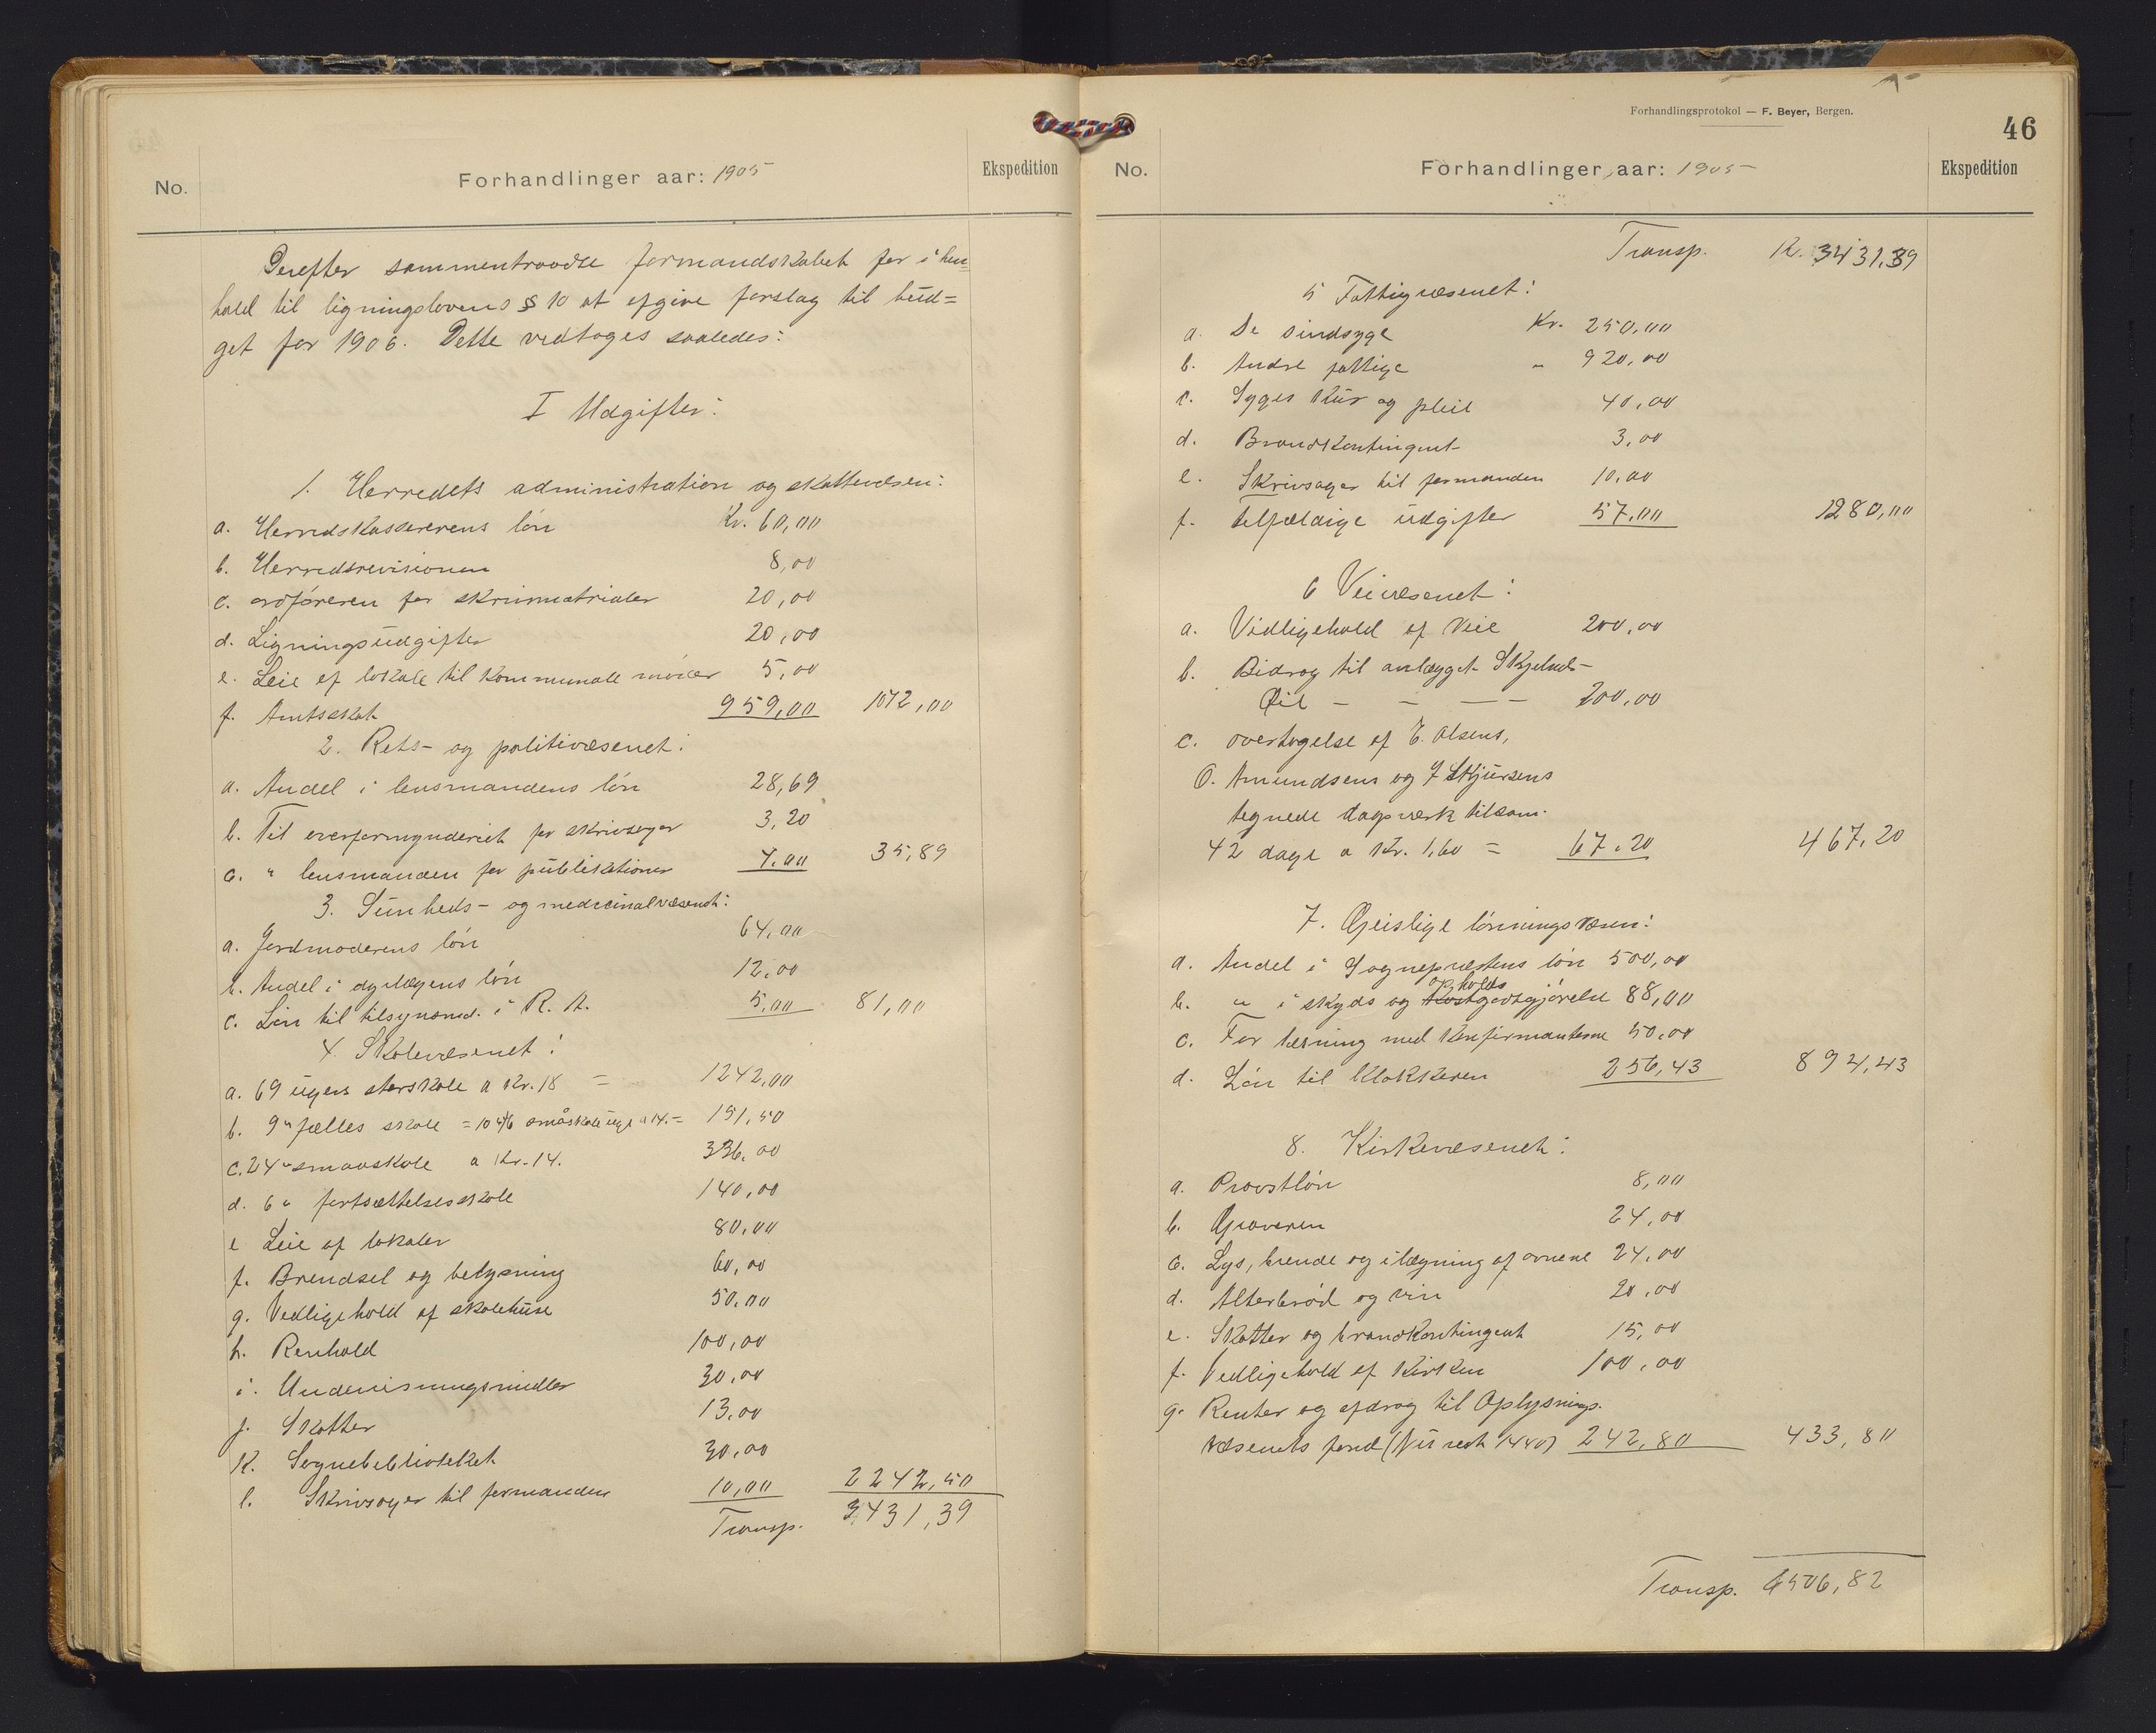 No.
Forhandlinger aar: 1905
Ekspedition
Derefter sammentraadte formandskabet for i hen-
hold til ligningslovens § 10 at afgive forslag til bud=
get for 1906. Dette vedtoges saaledes:
I Udgifter:
1. Herredets administration og skattevæsen:
a. Herredskassererens løn Kr. 60,00
b. Herredsrevisionen 8,00
c. ordføreren for skrivmatrialer 20,00
d. Ligningsudgifter 20,00
e. Leie af lokale til kommunale møder 5,00
f. Amtsskat 959,00 1072,00
2. Rets- og politivæsenet:
a. Andel i lensmandens løn 28,69
b. Til overformynderiet for skrivsager 3,20
c. " lensmanden for publikationer 4,00 35,89
3. Sunheds- og medicinalvæsenet:
a. Jordmoderens løn 64,00
b. Andel i dyrlægens løn 12,00
c. Løn til tilsynsmd. i R. A. 5,00 81,00
4. Skolevæsenet:
a. 69 ugers storskole a Kr. 18 = 1242,00
b. 9 " fælles skole = 10 4/6 småskoleuge a 14.= 151,50
c. 24 " smaaskole a Kr. 14. 336,00
d. 6 " fortsættelsesskole 140,00
e Leie af lokaler 80,00
f. Brendsel og belysning 60,00
g. Vedligehold af skolehuse 50,00
h. Renhold 100,00
i. Undervisningsmidler 30,00
j. Skatter 13,00
k. Sognebiblioteket 30,00
l. Skrivsager til formanden 10,00 2242,50
Transp. 3431,39
Forhandlingsprotokol — F. Beyer, Bergen.
46
No.
Forhandlinger aar: 1905
Ekspedition
Transp. K. 3431,39
5 Fattigvæsenet:
a. De sindsyge Kr. 250,00
b. Andre fattige " 920,00
c. Syges kur og pleie 40,00
d. Brandkontingent 3,00
e. Skrivsager til formanden 10,00
f. tilfældige udgifter 57,00 1280,00
6 Veivæsenet:
a. Vidligehold af Veie 200,00
b. Bidrag til anlægget Skjelnes-
Eid - - - - 200,00
c. overtagelse af E. Olsens,
O. Amundsens og I Skjursens
tegnede dagsværk tilsam.
42 dage a Kr. 1,60 = 67,20 467,20
7. Geislige lønningsvæsen:
a. Andel i Sogneprestens løn 500,00
b. " i skyds og opholds Kostgodtgjørelse 88,00
c. For læsning med Konfirmanterne 50,00
d. Løn til Klokkeren 256,43 894,43
8. Kirkevæsenet:
a. Provstløn 8,00
b. Graveren 24,00
c. Lys, brende og ilægning af ovnene 24,00
d. Alterbrød og vin 20,00
e. Skatter og brandkontingent 15,00
f. Vedligehold af Kirken 100,00
g. Renter og afdrag til Oplysnings-
væsenets fond (Nu rest 1440) 242,80 433,80
Transp. 6506,82